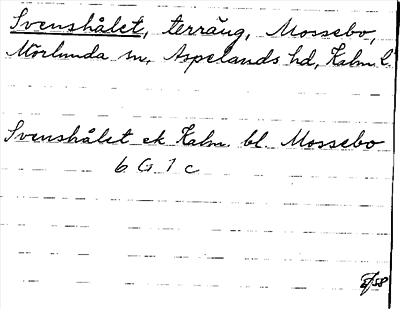 Svenshålet, terräng, Mossebo,
Mörlunda sn, Aspelands hd, Kalm. l.
Svenshålet ek Kalm. bl. Mossebo
6 G 1 c